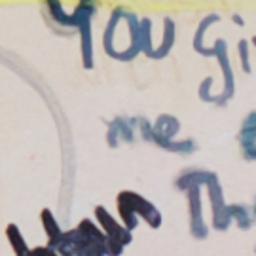 You gi
me
Th